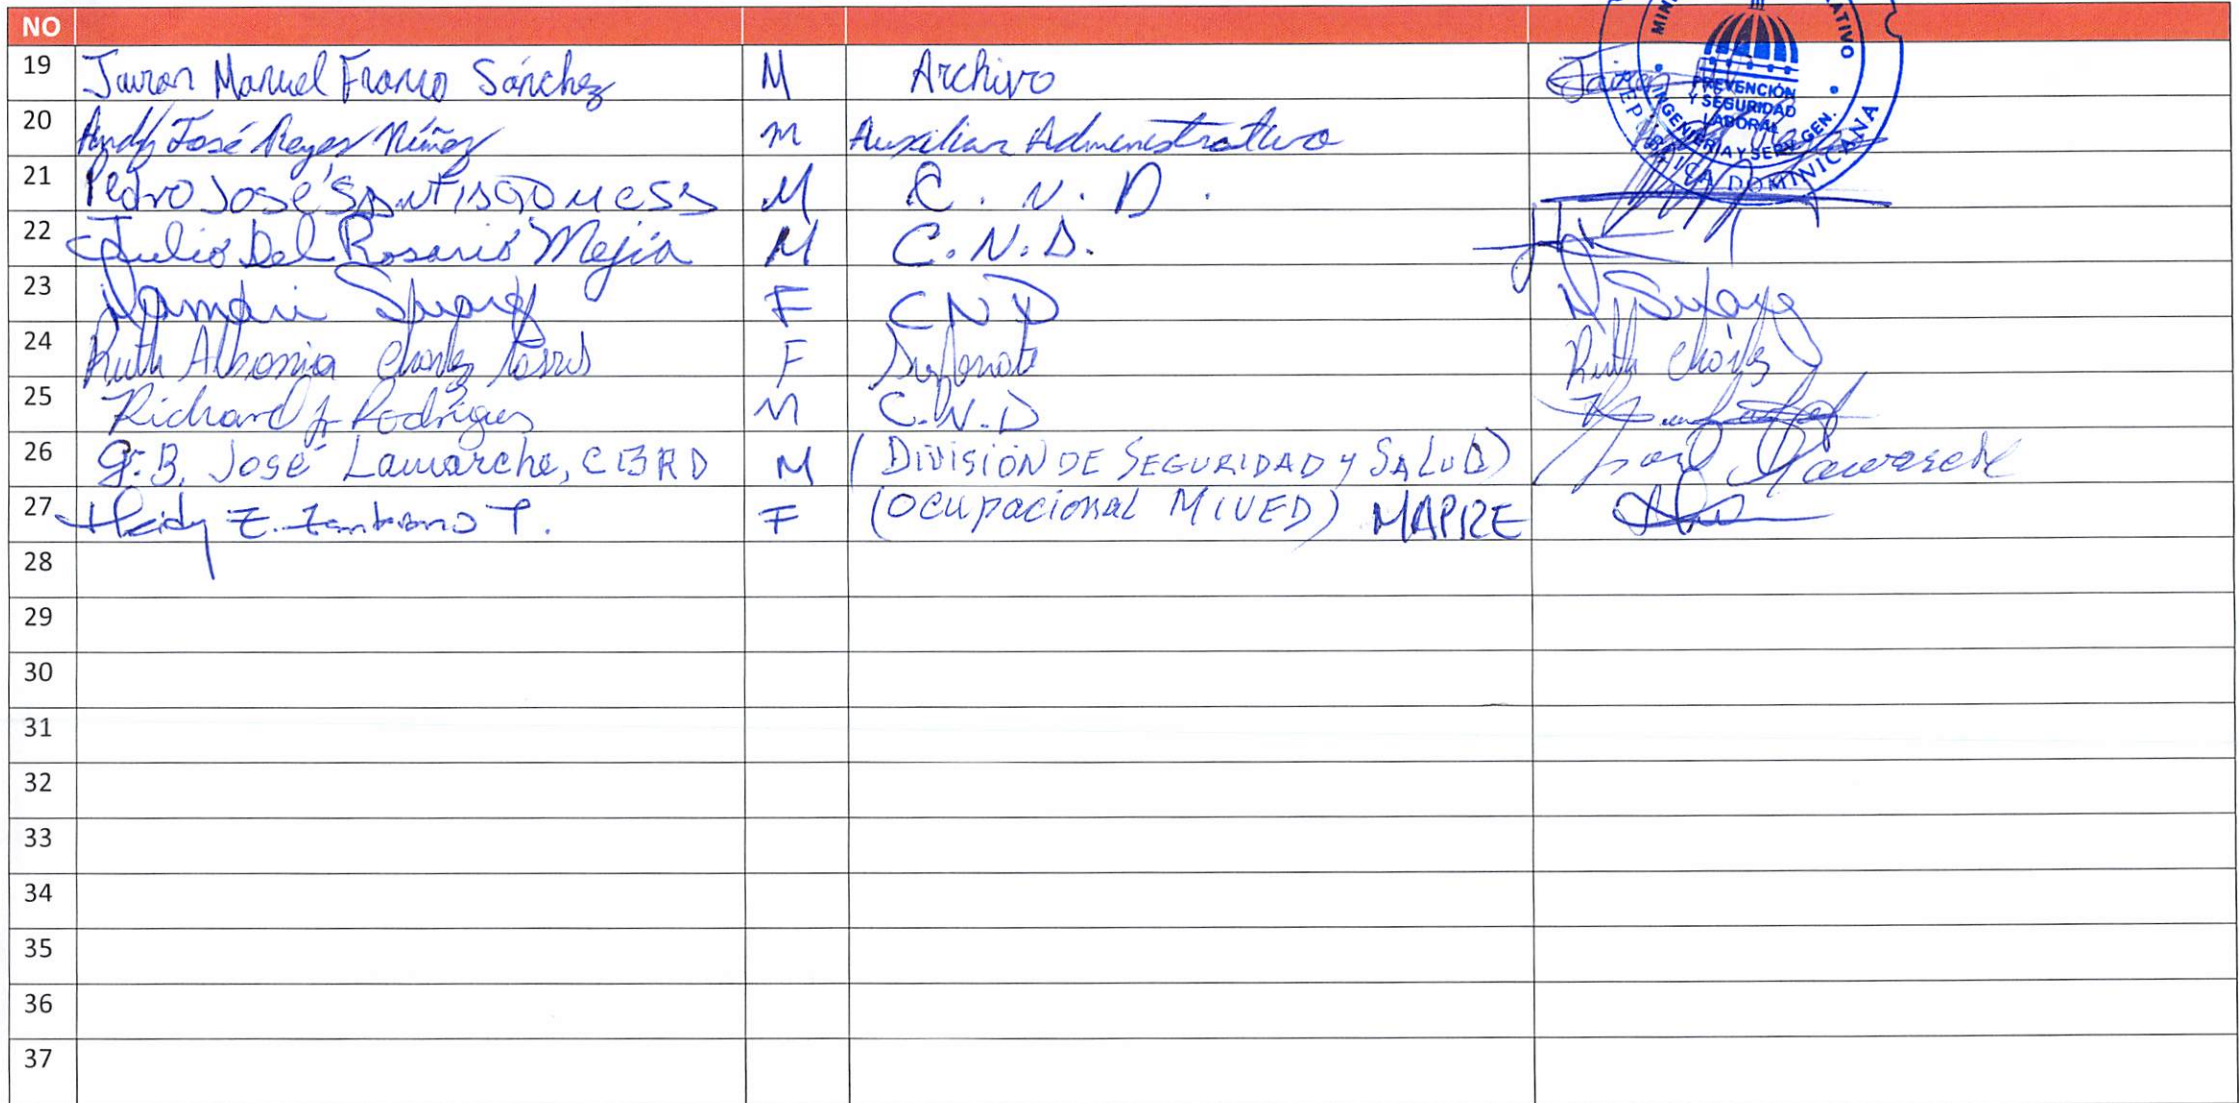 NO
19 Jairon Manuel Franco Sánchez M Archivo
20 Andy José Reyes Núñez m Auxiliar Administrativo
21 Pedro José M C. N. D.
22 Julio Del Rosario Mejía M C.N.D.
23 F CND
24 Ruth Charles F Ruth Charles
25 Richard Rodríguez M C.N.D
26 G.B. José Lamarche, CBRD M (DIVISIÓN DE SEGURIDAD y SALUD) José Lamarche
27 Heidy E. Zambrano T. F (Ocupacional MIVED) MAPRE
28
29
30
31
32
33
34
35
36
37
PREVENCIÓN
Y SEGURIDAD
LABORAL
INGENIERIA Y SERV. GEN.
REPUBLICA DOMINICANA